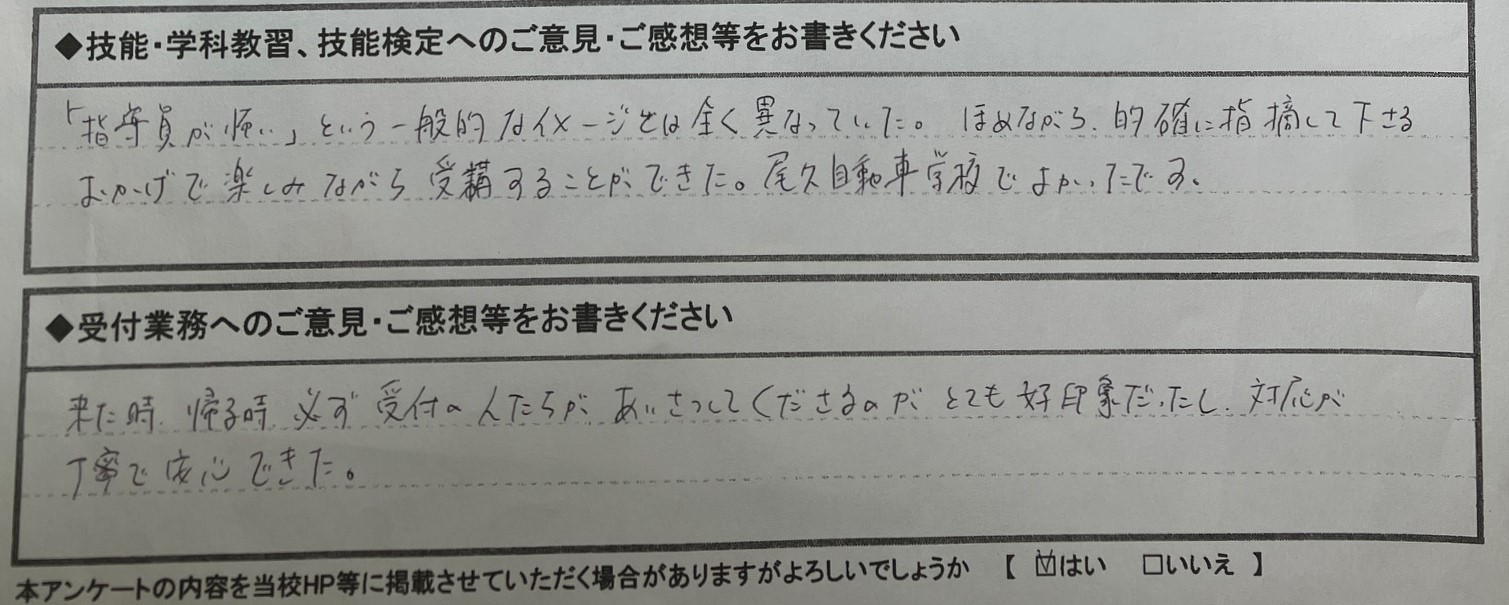 ◆技能・学科教習、技能検定へのご意見・ご感想等をお書きください
「指導員が怖い」という一般的なイメージとは全く異なっていた。ほめながら、的確に指摘して下さる
おかげで楽しみながら受講することができた。尾久自動車学校でよかったです。
◆受付業務へのご意見・ご感想等をお書きください
来た時、帰る時、必ず受付の人たちが、あいさつしてくださるのがとても好印象だったし、対応が
丁寧で安心できた。
本アンケートの内容を当校HP等に掲載させていただく場合がありますがよろしいでしょうか 【 ☑はい □いいえ 】